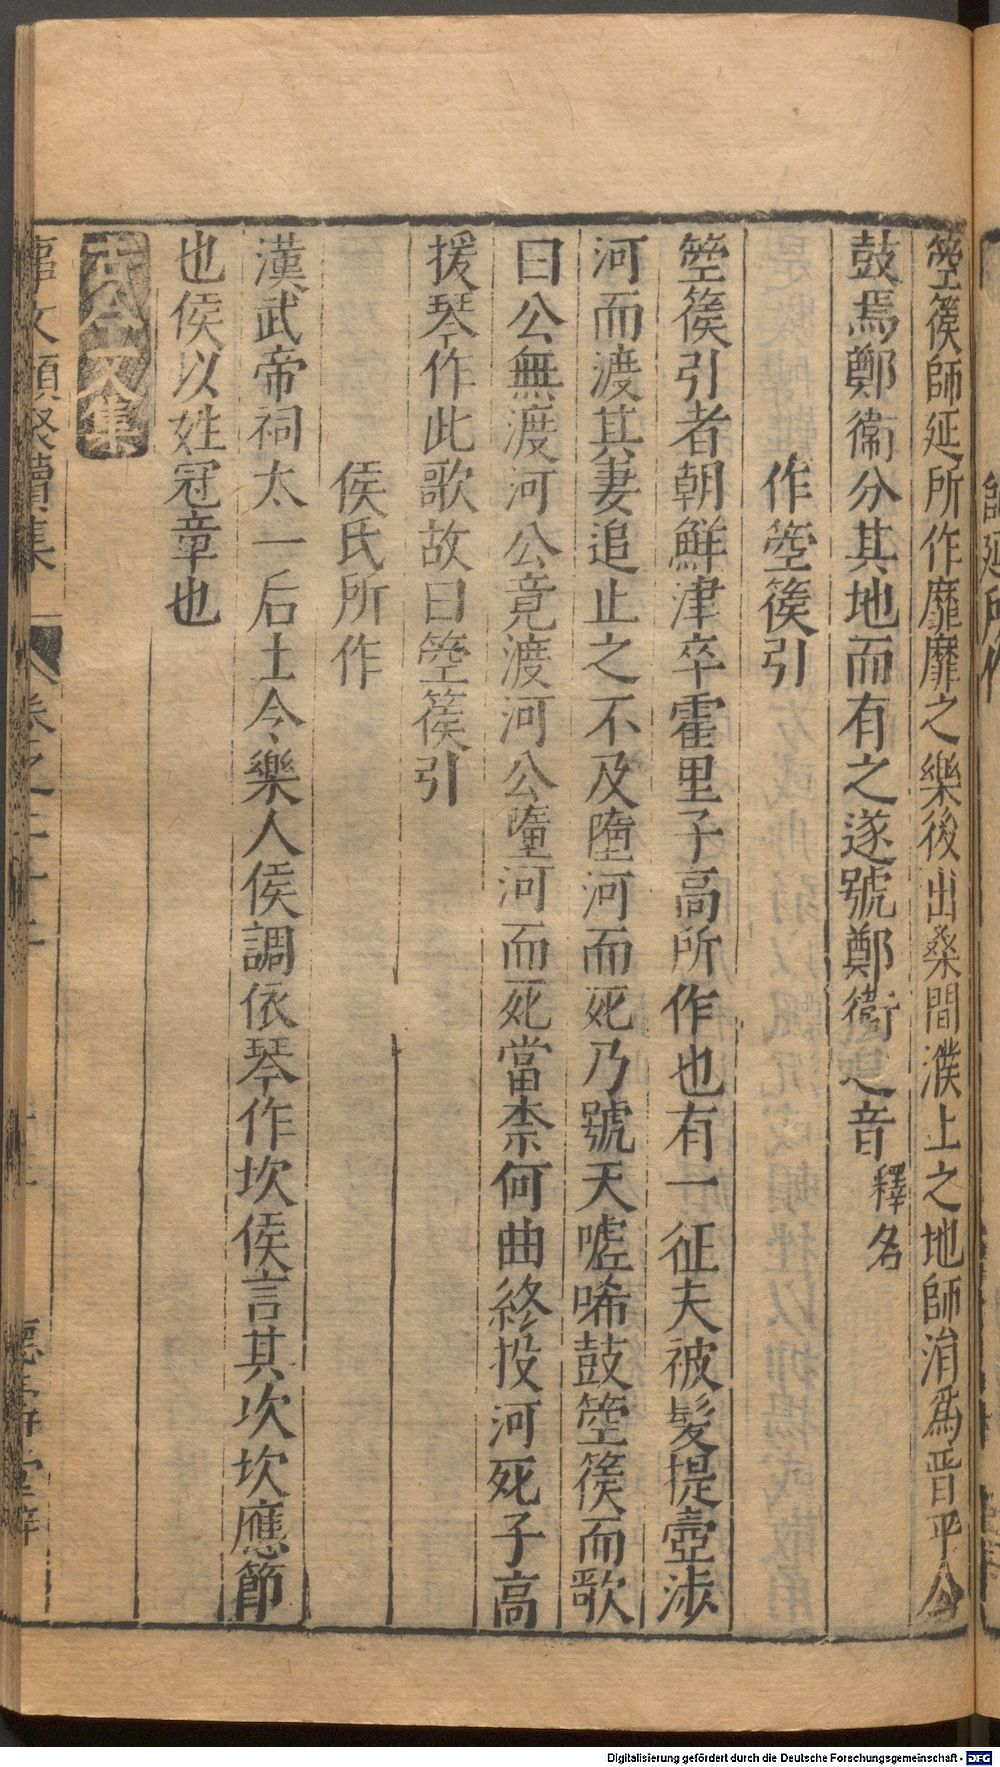 箜篌師延所作靡靡之樂後出桑間濮上之地師涓爲晉平公
鼓焉鄭衛分其地而有之遂號鄭衛之音釋名
作箜篌引
箜篌引者朝鮮津卒霍里子高所作也有一征夫被髮提壺涉
河而渡其妻追止之不及墮河而死乃號天噓唏鼓箜篌而歌
曰公無渡河公竟渡河公墮河而死當柰何曲終投河死子高
援琴作此歌故曰箜篌引
侯氏所作
漢武帝祠太一后土令樂人侯調依琴作坎侯言其坎坎應節
也侯以姓冠章也
古今文集
事文類聚續集
卷之二十二
Digitalisierung gefördert durch die Deutsche Forschungsgemeinschaft - DFG